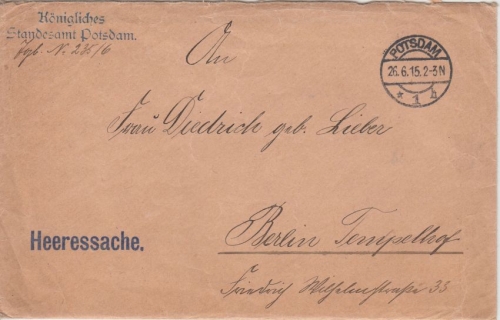 Königliches
Standesamt Potsdam.
Tgb. N. 236/6
POTSDAM
26.6.15.2-3N
* 1 h
An
Frau Diedrich geb. Lieber
Heeressache.
Berlin Tempelhof
Friedrich Wilhelmstraße 35.